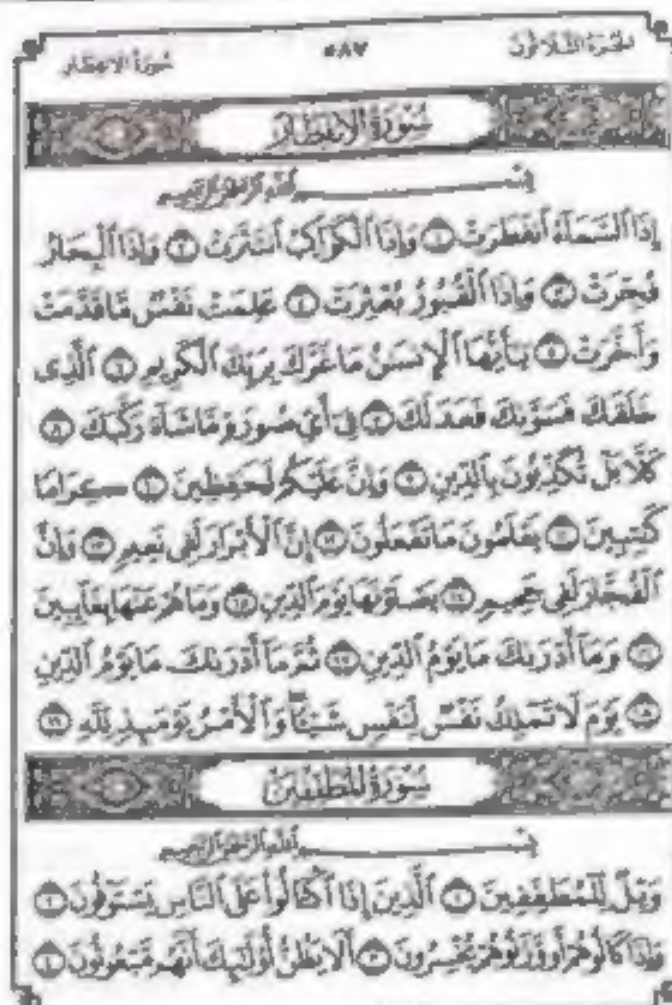 سُورَةُ الانفِطَار ٥٨٧ الجُزءُ الثَّلَاثُونَ
سُورَةُ الانفِطَارِ
بِسْمِ اللَّهِ الرَّحْمَٰنِ الرَّحِيمِ
إِذَا ٱلسَّمَآءُ ٱنفَطَرَتْ ١ وَإِذَا ٱلْكَوَاكِبُ ٱنتَثَرَتْ ٢ وَإِذَا ٱلْبِحَارُ
فُجِّرَتْ ٣ وَإِذَا ٱلْقُبُورُ بُعْثِرَتْ ٤ عَلِمَتْ نَفْسٌ مَّا قَدَّمَتْ
وَأَخَّرَتْ ٥ يَٰٓأَيُّهَا ٱلْإِنسَٰنُ مَا غَرَّكَ بِرَبِّكَ ٱلْكَرِيمِ ٦ ٱلَّذِى
خَلَقَكَ فَسَوَّىٰكَ فَعَدَلَكَ ٧ فِىٓ أَىِّ صُورَةٍ مَّا شَآءَ رَكَّبَكَ ٨
كَلَّا بَلْ تُكَذِّبُونَ بِٱلدِّينِ ٩ وَإِنَّ عَلَيْكُمْ لَحَٰفِظِينَ ١٠ كِرَامًا
كَٰتِبِينَ ١١ يَعْلَمُونَ مَا تَفْعَلُونَ ١٢ إِنَّ ٱلْأَبْرَارَ لَفِى نَعِيمٍ ١٣ وَإِنَّ
ٱلْفُجَّارَ لَفِى جَحِيمٍ ١٤ يَصْلَوْنَهَا يَوْمَ ٱلدِّينِ ١٥ وَمَا هُمْ عَنْهَا بِغَآئِبِينَ
١٦ وَمَآ أَدْرَىٰكَ مَا يَوْمُ ٱلدِّينِ ١٧ ثُمَّ مَآ أَدْرَىٰكَ مَا يَوْمُ ٱلدِّينِ
١٨ يَوْمَ لَا تَمْلِكُ نَفْسٌ لِّنَفْسٍ شَيْـًٔا وَٱلْأَمْرُ يَوْمَئِذٍ لِّلَّهِ ١٩
سُورَةُ المُطَفِّفِينَ
بِسْمِ اللَّهِ الرَّحْمَٰنِ الرَّحِيمِ
وَيْلٌ لِّلْمُطَفِّفِينَ ١ ٱلَّذِينَ إِذَا ٱكْتَالُوا۟ عَلَى ٱلنَّاسِ يَسْتَوْفُونَ ٢
وَإِذَا كَالُوهُمْ أَو وَّزَنُوهُمْ يُخْسِرُونَ ٣ أَلَا يَظُنُّ أُو۟لَٰٓئِكَ أَنَّهُم مَّبْعُوثُونَ ٤